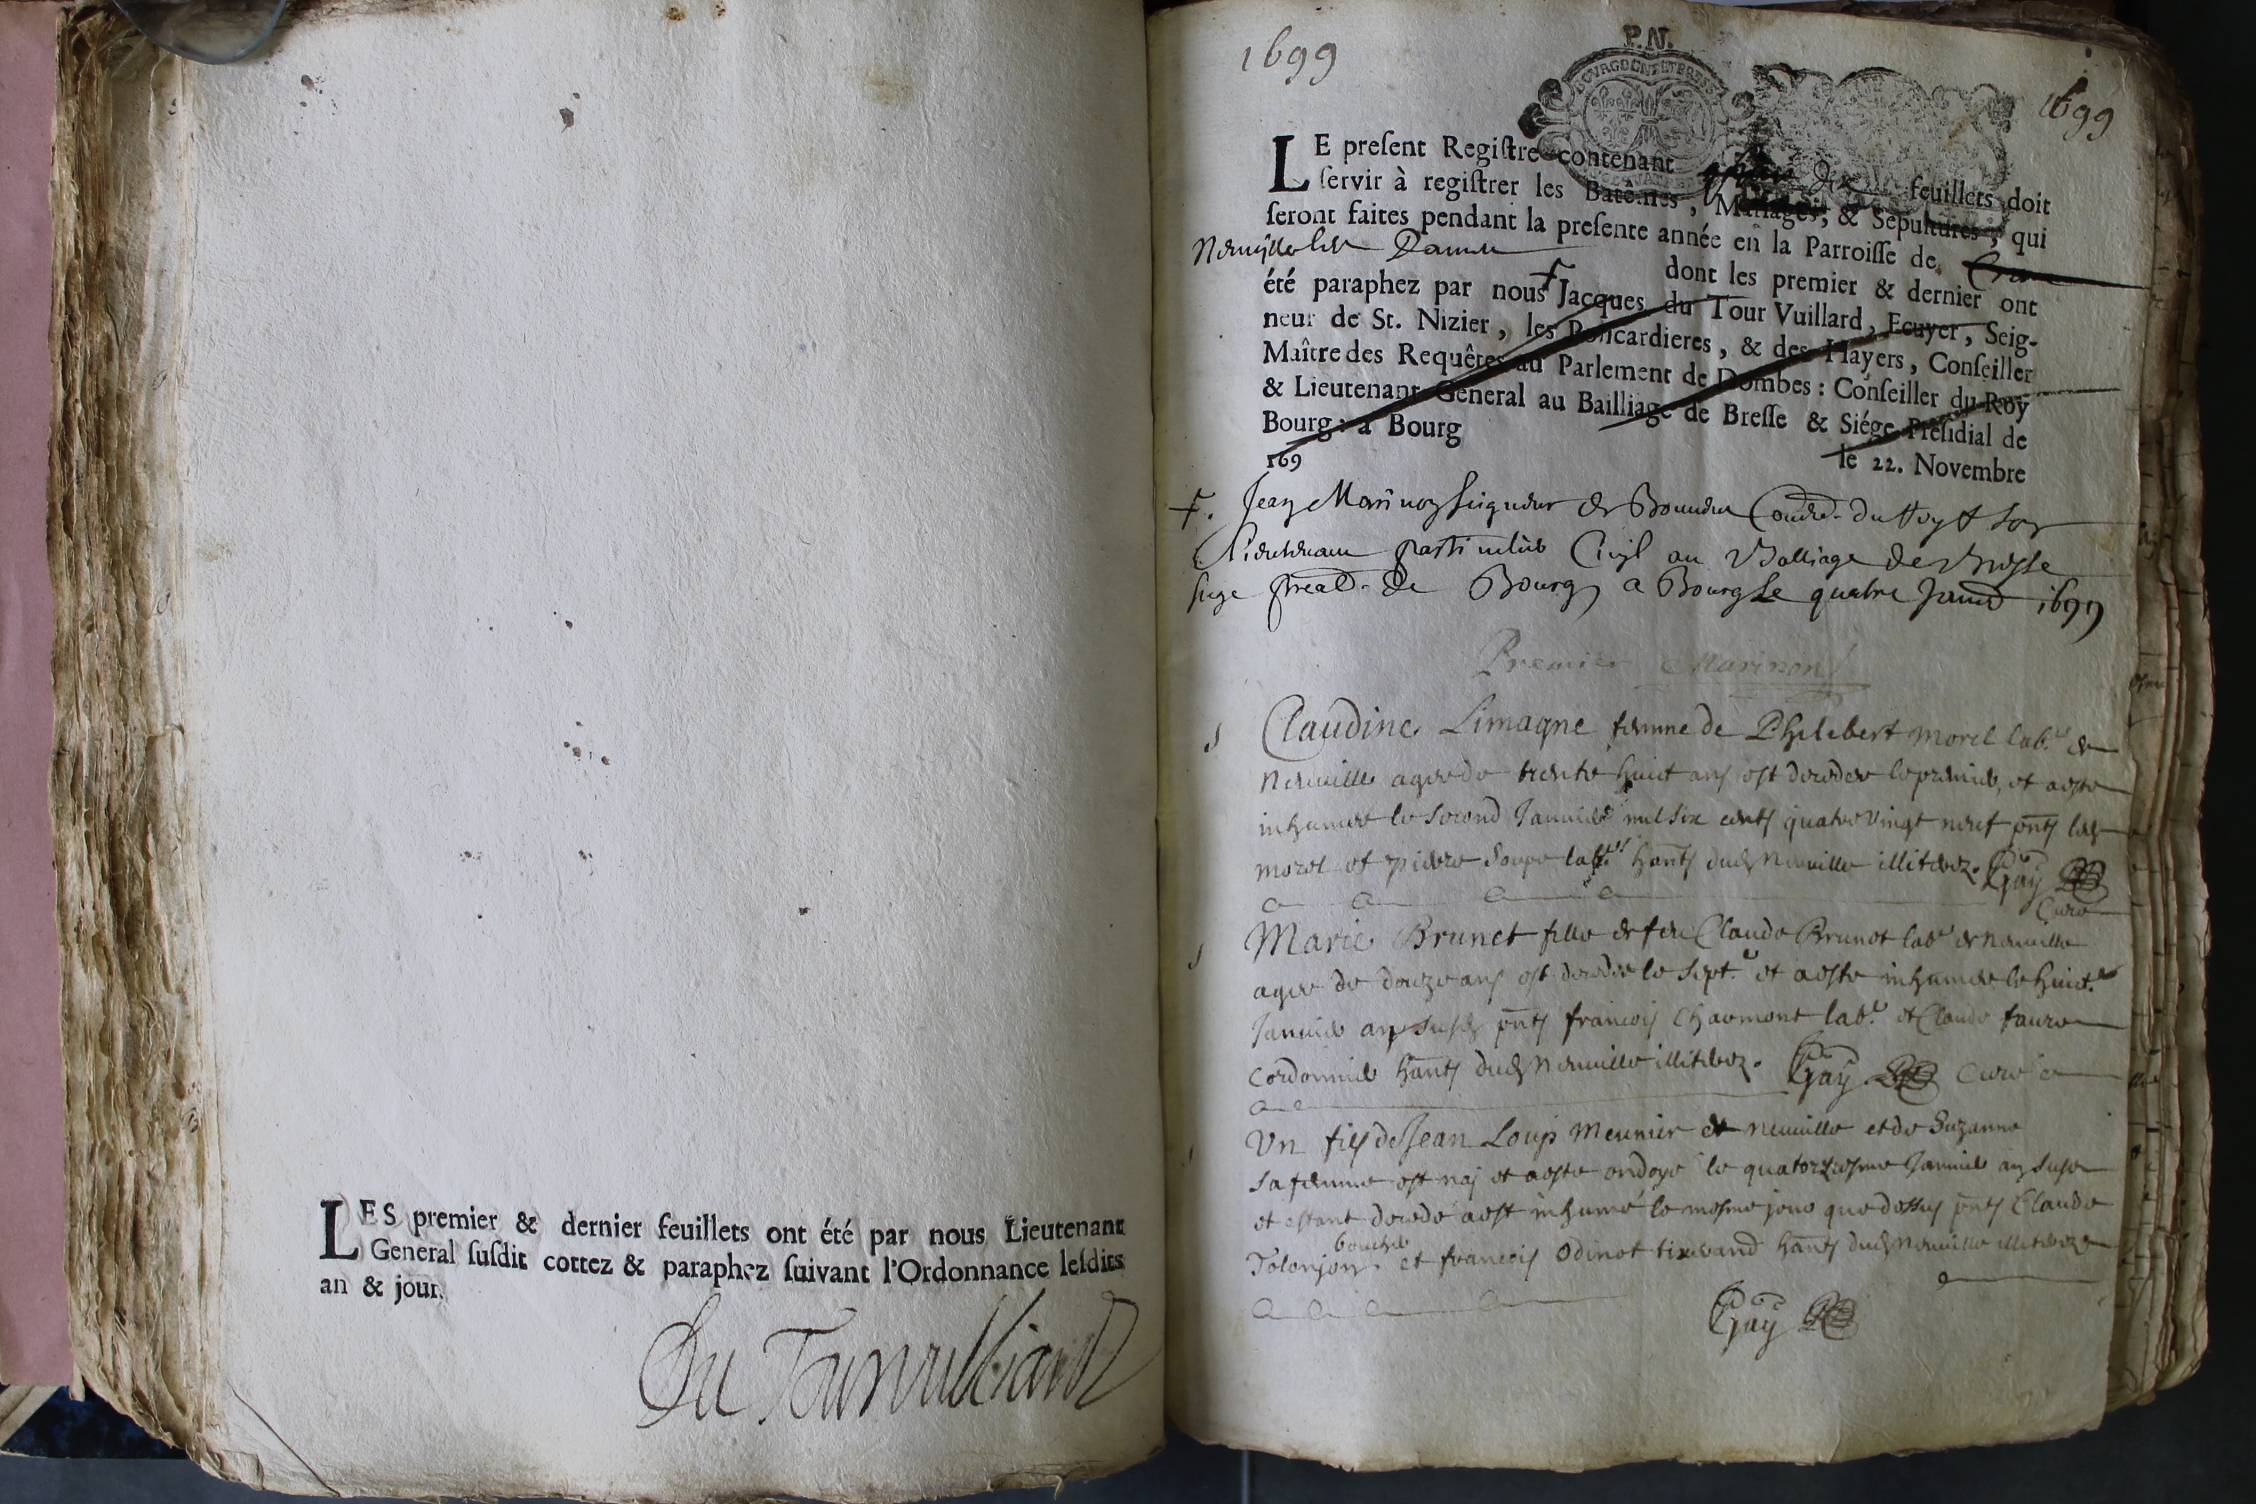 LES premier & dernier feuillets ont été par nous Lieutenant
General ſuſdit cottez & paraphez ſuivant l'Ordonnance leſdits
an & jour.
Du Tourvuilliard
1699
P.N.
1699
LE preſent Regiſtre contenant dix feuillets doit
ſervir à regiſtrer les Batêmes, Mariages, & Sepultures, qui
ſeront faites pendant la preſente année en la Parroiſſe de
Neuville les Dames dont les premier & dernier ont
été paraphez par nous Jacques du Tour Vuillard, Ecuyer, Seig-
neur de St. Nizier, les Poncardieres, & des Hayers, Conſeiller
Maître des Requêtes au Parlement de Dombes : Conſeiller du Roy
& Lieutenant General au Bailliage de Breſſe & Siége Preſidial de
Bourg : à Bourg le 22. Novembre
169
Jean Marinon Seigneur de du Roy & son
Lieutenant particulier Civil au Balliage de Bresse
siege de Bourg a Bourg le quatre 1699
Premier Marinon
Claudine Limagne femme de Philebert morel lab.r de
neuville agee de trente huict ans est decedee le premier, et a este
inhumee le second Janvier mil six cents quatre vingt neuf pnts led
morel et pierre Soupe lab.rs hants dud neuville illiterez. Gay
Curé
Marie Brunet fille de feu Claude Brunet lab.r de neuville
agee de douze ans est decedee le sept.e et a este inhumee le huict.e
Janvier an susd pnts francois Chaomont lab.r et Claude faure
cordonnier hants dud neuville illiterez. Gay Curé
Un fils de Jean Loup meunier de neuville et de Suzanne
sa femme est naj et a este ondoyé le quatorziesme Janvier an susd
et estant decede a est inhumé le mesme jour que dessus pnts Claude
Tolonjon boucher et francois Odinot tixerand hants dud neuville illiterez
Gay